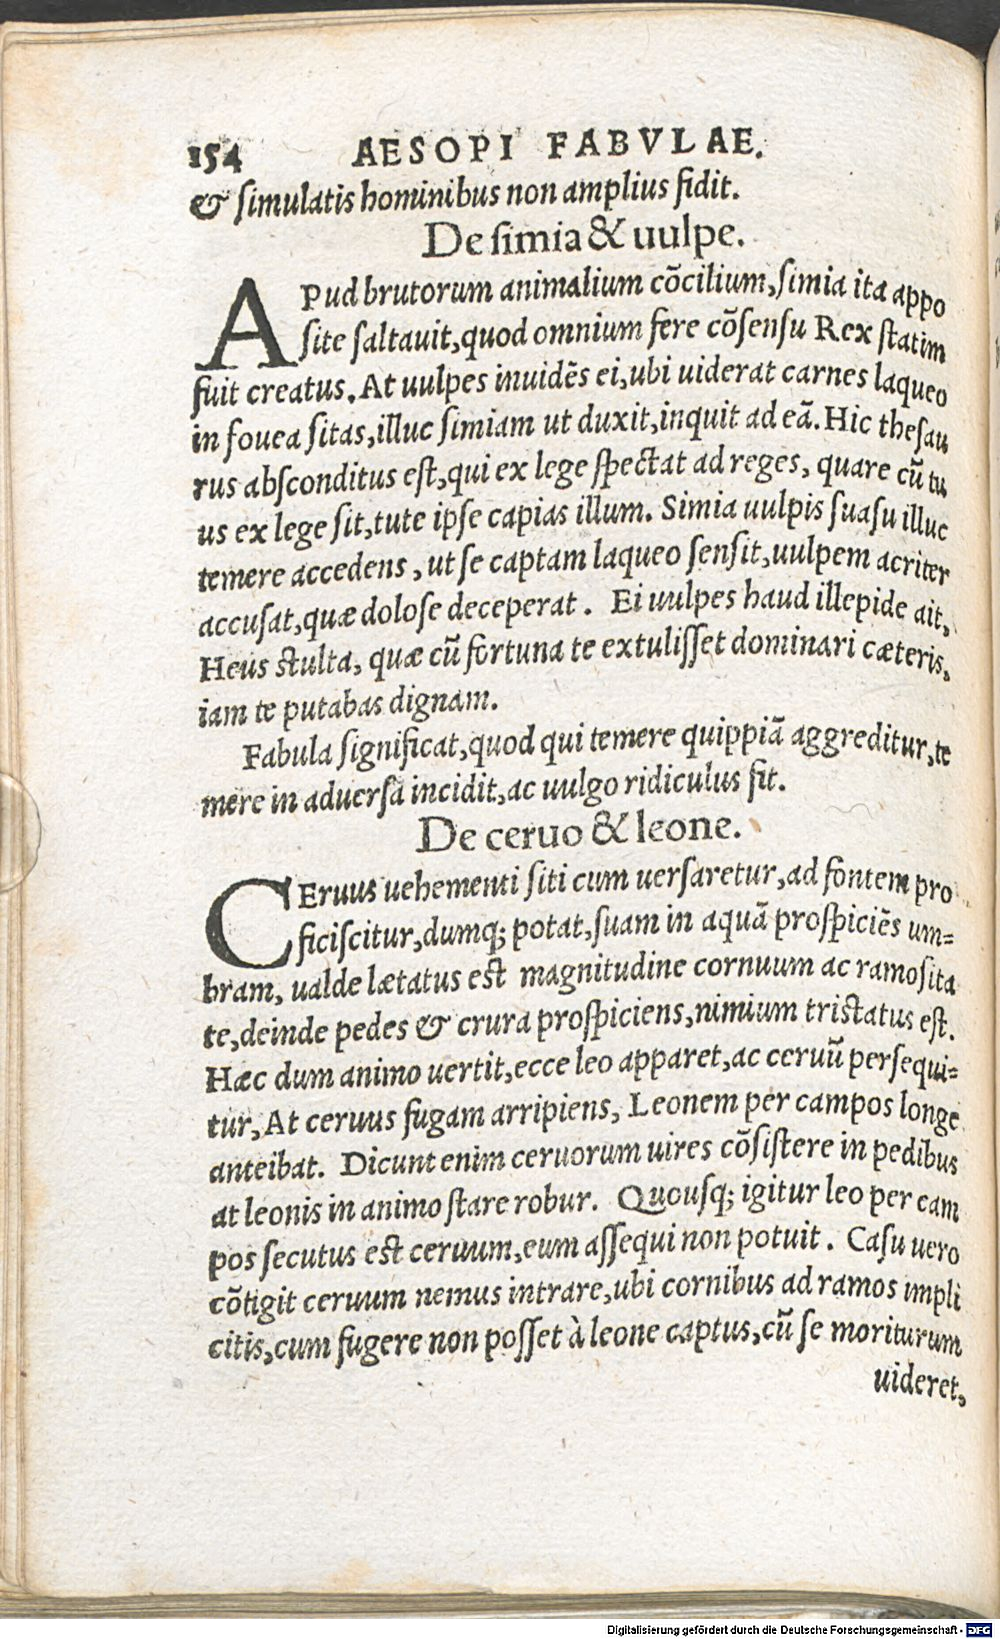 154 AESOPI FABVLAE.
& simulatis hominibus non amplius fidit.
De simia & uulpe.
APud brutorum animalium cõcilium, simia ita appo
site saltauit, quod omnium fere cõsensu Rex statim
fuit creatus. At uulpes inuidẽs ei, ubi uiderat carnes laqueo
in fouea sitas, illuc simiam ut duxit, inquit ad eã. Hic thesau
rus absconditus est, qui ex lege spectat ad reges, quare cũ tu
us ex lege sit, tute ipse capias illum. Simia uulpis suasu illuc
temere accedens, ut se captam laqueo sensit, uulpem acriter
accusat, quæ dolose deceperat. Ei uulpes haud illepide ait,
Heus stulta, quæ cũ fortuna te extulisset dominari cæteris,
iam te putabas dignam.
Fabula significat, quod qui temere quippiã aggreditur, te
mere in aduersa incidit, ac uulgo ridiculus fit.
De ceruo & leone.
CEruus uehementi siti cum uersaretur, ad fontem pro
ficiscitur, dumq; potat, suam in aquã prospiciẽs um=
bram, ualde lætatus est magnitudine cornuum ac ramosita
te, deinde pedes & crura prospiciens, nimium tristatus est.
Hæc dum animo uertit, ecce leo apparet, ac ceruũ persequi=
tur, At ceruus fugam arripiens, Leonem per campos longe
anteibat. Dicunt enim ceruorum uires cõsistere in pedibus
at leonis in animo stare robur. Quousq; igitur leo per cam
pos secutus est ceruum, eum assequi non potuit. Casu uero
cõtigit ceruum nemus intrare, ubi cornibus ad ramos impli
citis, cum fugere non posset à leone captus, cũ se moriturum
uideret,
Digitalisierung gefördert durch die Deutsche Forschungsgemeinschaft - DFG